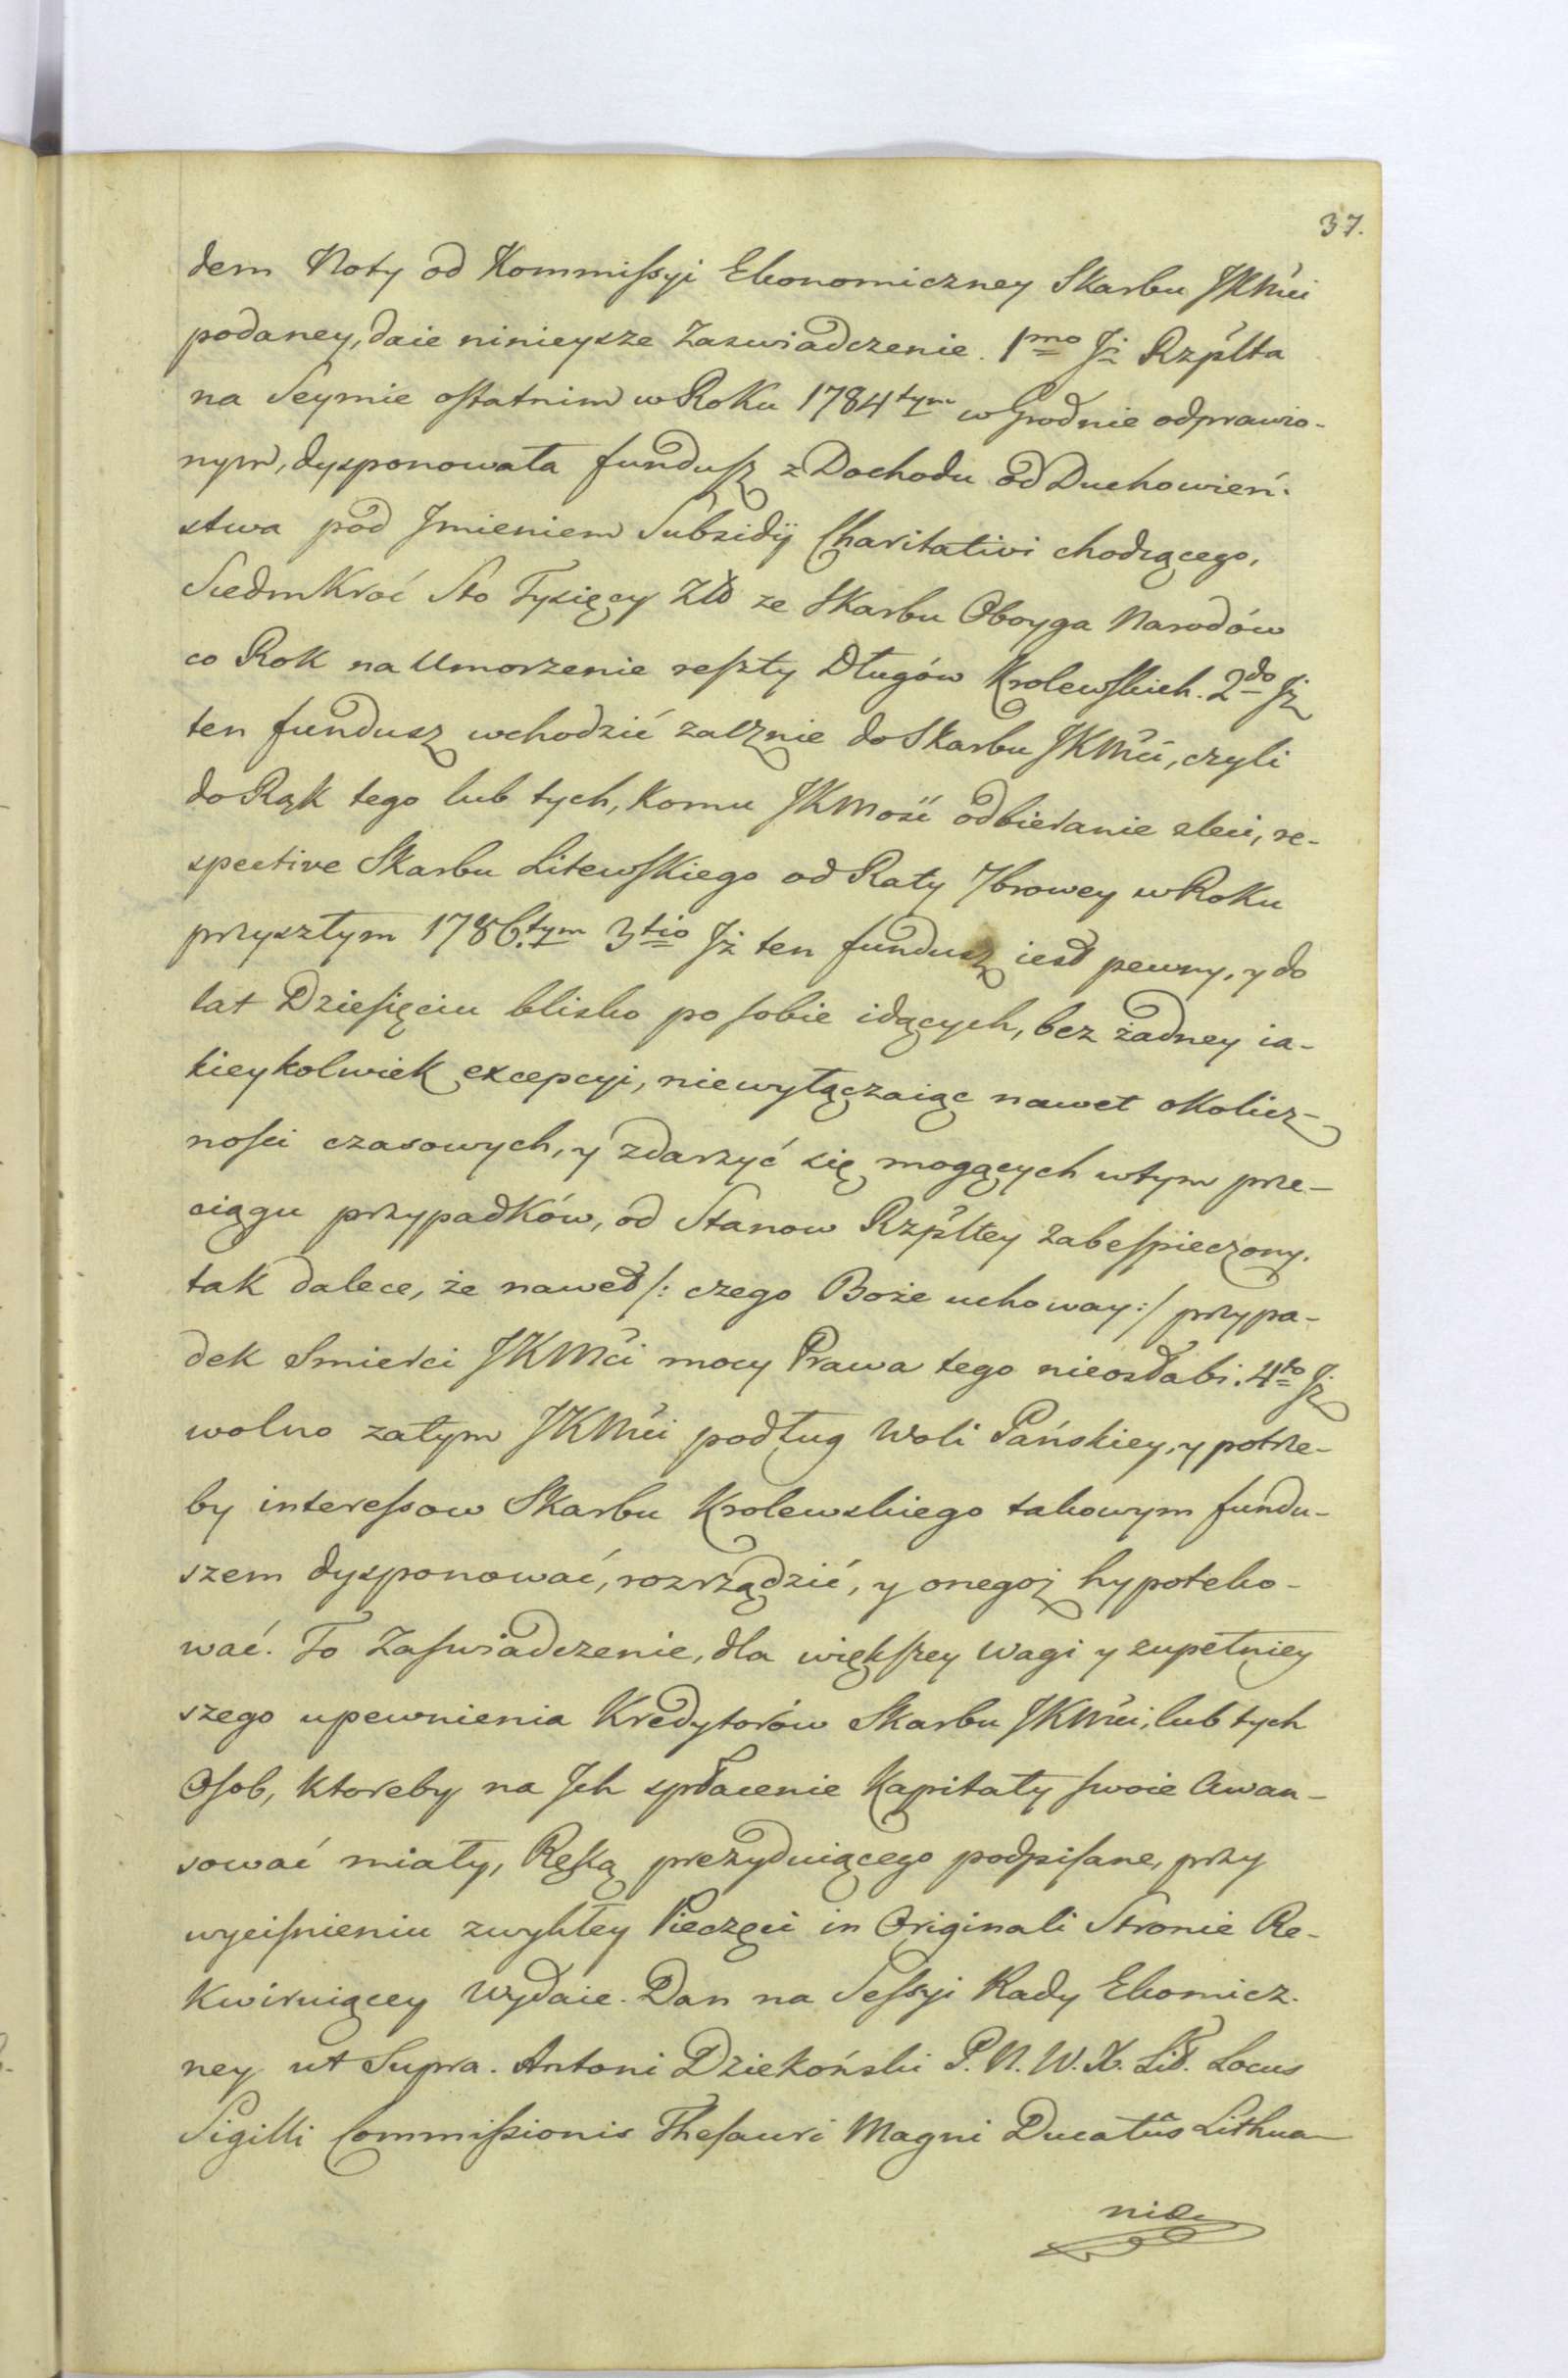 37.
dem Noty od Kommissyi Ekonomiczney Skarbu JKMći
podaney, daie ninieysze Zaswiadczenie. 1mo Jż Rzplta
na Seymie ostatnim w Roku 1784tym w Grodnie odprawio-
nym, dysponowała fundusz z Dochodu od Duchowień-
stwa pod Jmieniem Subsidij Charitativi chodzącego,
SiedmKroć Sto Tysięcy Złł ze Skarbu Oboyga Narodów
co Rok na Umorzenie reszty Długów Krolewskich. 2do Jż
ten fundusz wchodzić zacznie do Skarbu JKMći, czyli
do Rąk tego lub tych, komu JKMość odbieranie zleci, re-
spective Skarbu Litewskiego od Raty 7browey w Roku
przyszłym 1786.tym 3tio Jż ten fundusz iest pewny, y do
lat Dziesięciu blisko po sobie idących, bez żadney ia-
kieykolwiek excepcyi, niewyłączaiąc nawet okolicz-
nosci czasowych, y zdarzyć się mogących w tym prze-
ciągu przypadków, od Stanow Rzpltey zabespieczony.
tak dalece, że nawet /: czego Boże uchoway :/ przypa-
dek Smierci JKMći mocy Prawa tego nieosłabi. 4to Jż
wolno zatym JKMći podług Woli Pańskiey, y potrze-
by interessow Skarbu Krolewskiego takowym fundu-
szem dysponować, rozrządzić, y onegoż hypoteko-
wać. To Zaswiadczenie, dla większey wagi y zupełniey
szego upewnienia Kredytorów Skarbu JKMći, lub tych
Osob, ktoreby na Jch spłacenie Kapitały swoie Awan-
sować miały, Ręką prezyduiącego podpisane, przy
wycisnieniu zwykłey Pieczęci in Originali Stronie Re-
kwiruiącey wydaie. Dan na Sessyi Rady Ekomicz-
ney ut Supra. Antoni Dziekoński P. N. W. X. Litt. Locus
Sigilli Commissionis Thesauri Magni Ducatûs Lithua-
niæ